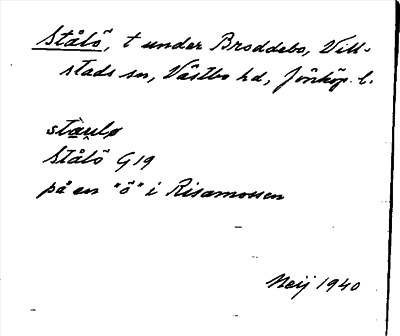 Stålö, t under Broddebo, Vill-
stads sn, Västbo hd, Jönköp. l.
Stålö G19
på en "ö" i Risamossen
Neij 1940